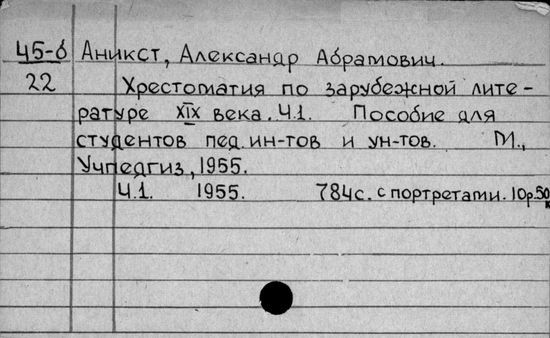 45-б Аникст, Александр Абрамович.
22 Хрестоматия по зарубежной лите-
ратуре XIX века. Ч.1. Пособие для
студентов пед. ин-тов и ун-тов. М.,
Учпедгиз, 1955.
Ч.1. 1955. 784с. с портретами. 10р.50к